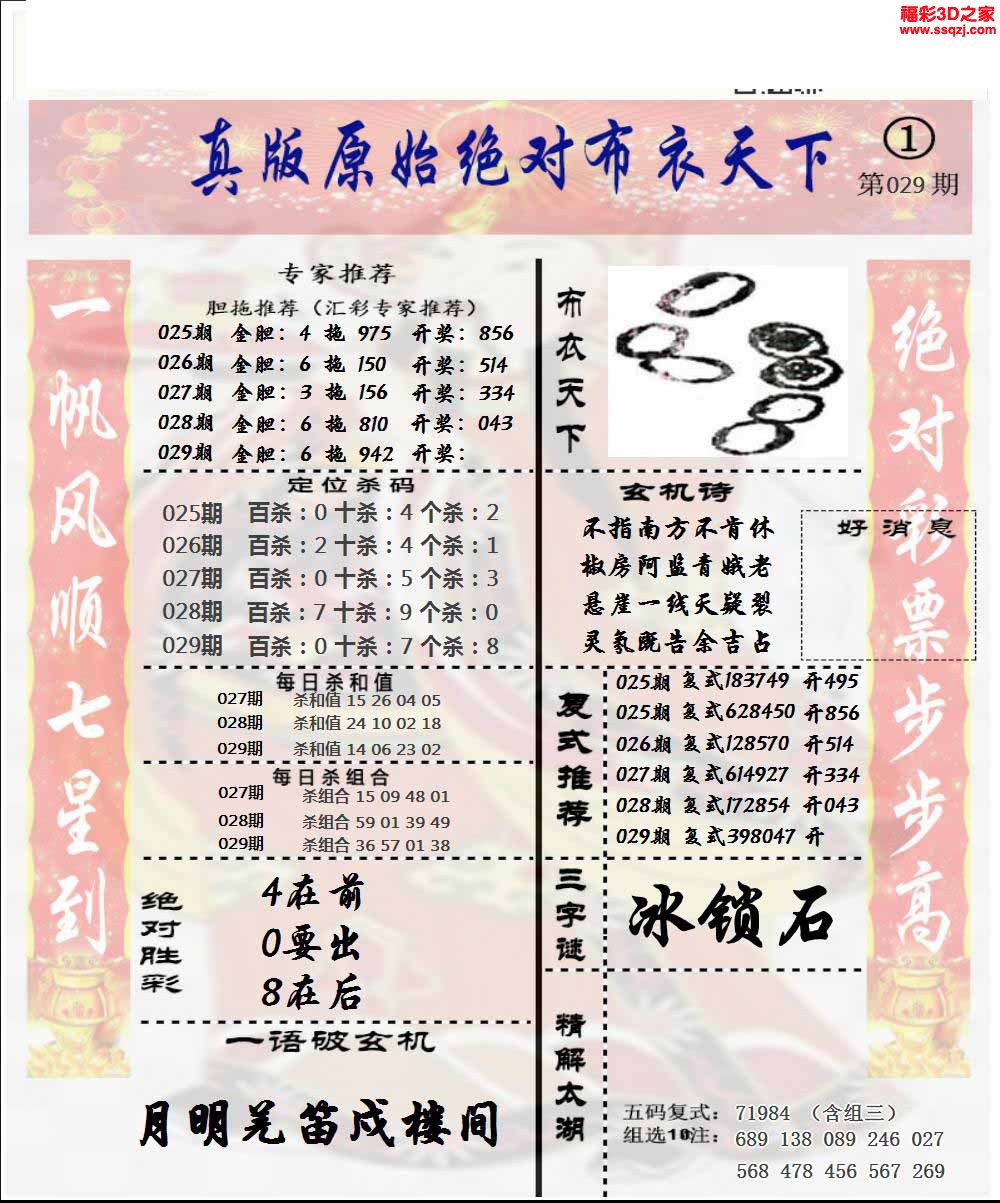 福彩3D之家
www.ssqzj.com
真版原始绝对布衣天下
①
第029期
一帆风顺七星到
专家推荐
胆拖推荐（汇彩专家推荐）
025期 金胆：4 拖 975 开奖：856
026期 金胆：6 拖 150 开奖：514
027期 金胆：3 拖 156 开奖：334
028期 金胆：6 拖 810 开奖：043
029期 金胆：6 拖 942 开奖：
定位杀码
025期 百杀：0 十杀：4 个杀：2
026期 百杀：2 十杀：4 个杀：1
027期 百杀：0 十杀：5 个杀：3
028期 百杀：7 十杀：9 个杀：0
029期 百杀：0 十杀：7 个杀：8
每日杀和值
027期 杀和值 15 26 04 05
028期 杀和值 24 10 02 18
029期 杀和值 14 06 23 02
每日杀组合
027期 杀组合 15 09 48 01
028期 杀组合 59 01 39 49
029期 杀组合 36 57 01 38
绝对胜彩
4在前
0要出
8在后
一语破玄机
月明羌笛戍楼间
布衣天下
玄机诗
不指南方不肯休
椒房阿监青娥老
悬崖一线天疑裂
灵氛既告余吉占
好消息
复式推荐
025期 复式183749 开495
025期 复式628450 开856
026期 复式128570 开514
027期 复式614927 开334
028期 复式172854 开043
029期 复式398047 开
三字谜
冰锁石
精解太湖
五码复式：71984 （含组三）
组选10注：689 138 089 246 027
568 478 456 567 269
绝对彩票步步高